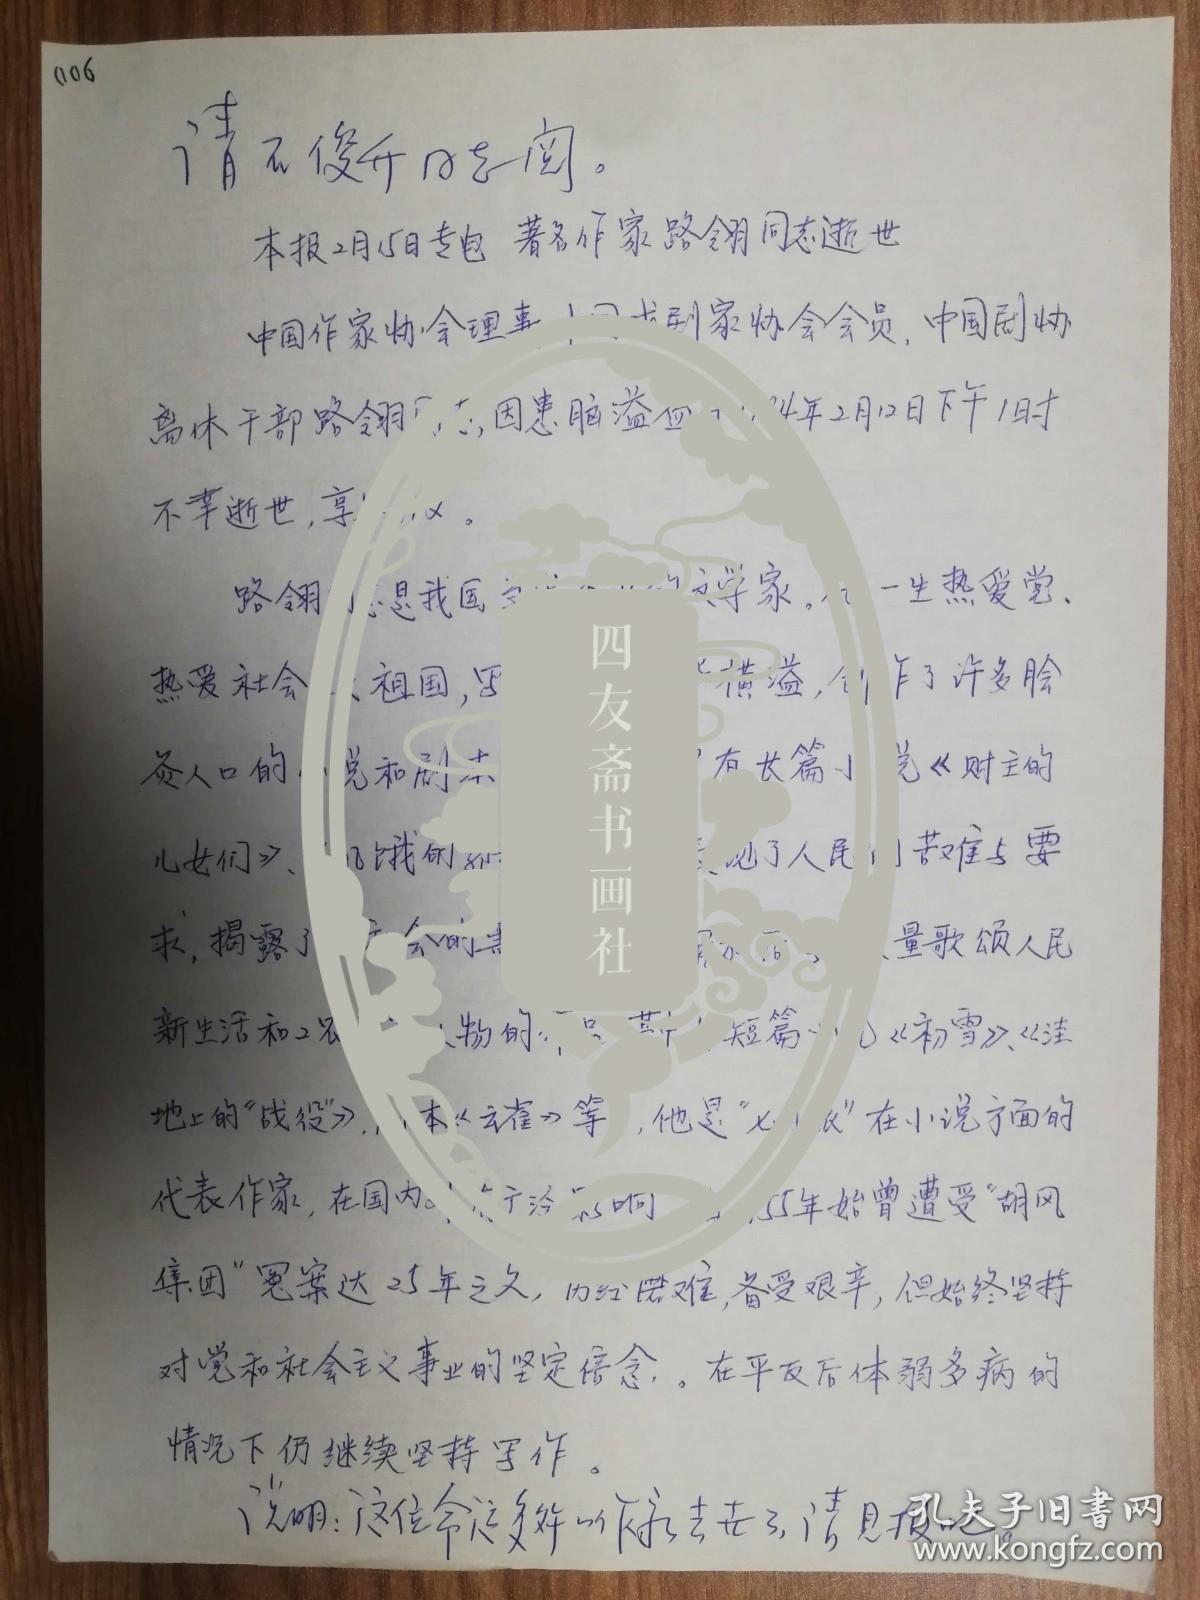 006
请石俊升同志阅。
本报2月15日专电 著名作家路翎同志逝世
中国作家协会理事、中国戏剧家协会会员，中国剧协
离休干部路翎同志，因患脑溢血 94年2月12日下午1时
不幸逝世，享
路翎 是我国 文学家。他一生热爱党、
热爱社会 祖国，写 横溢，创作了许多脍
炙人口的小说和剧本 有长篇小说《财主的
儿女们》、《饥饿的郭 现了人民的苦难与要
求，揭露了 会的黑 量歌颂人民
新生活和工农 人物的作品 短篇小说《初雪》、《洼
地上的“战役”》， 本《云雀》等，他是“七月派”在小说方面的
代表作家，在国内 影响 55年始曾遭受“胡风
集团”冤案达25年之久，历经磨难，备受艰辛，但始终坚持
对党和社会主义事业的坚定信念。在平反后体弱多病的
情况下仍继续坚持写作。
说明：这位命运多舛的作家去世了，请见报吧。
四友斋书画社
孔夫子旧书网
www.kongfz.com